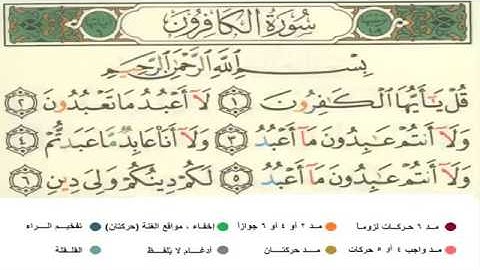 سُورَةُ الكَافِرُونَ
بِسْمِ ٱللَّهِ ٱلرَّحْمَٰنِ ٱلرَّحِيمِ
قُلْ يَٰٓأَيُّهَا ٱلْكَٰفِرُونَ ١ لَآ أَعْبُدُ مَا تَعْبُدُونَ ٢
وَلَآ أَنتُمْ عَٰبِدُونَ مَآ أَعْبُدُ ٣ وَلَآ أَنَا۠ عَابِدٌ مَّا عَبَدتُّمْ ٤
وَلَآ أَنتُمْ عَٰبِدُونَ مَآ أَعْبُدُ ٥ لَكُمْ دِينُكُمْ وَلِىَ دِينِ ٦
مد ٦ حركات لزوماً مد ٢ أو ٤ أو ٦ جوازاً إخفاء ، مواقع الغنة (حركتان) تفخيم الراء
مد واجب ٤ أو ٥ حركات مد حركتان أدغام ، لا يلفظ القلقلة